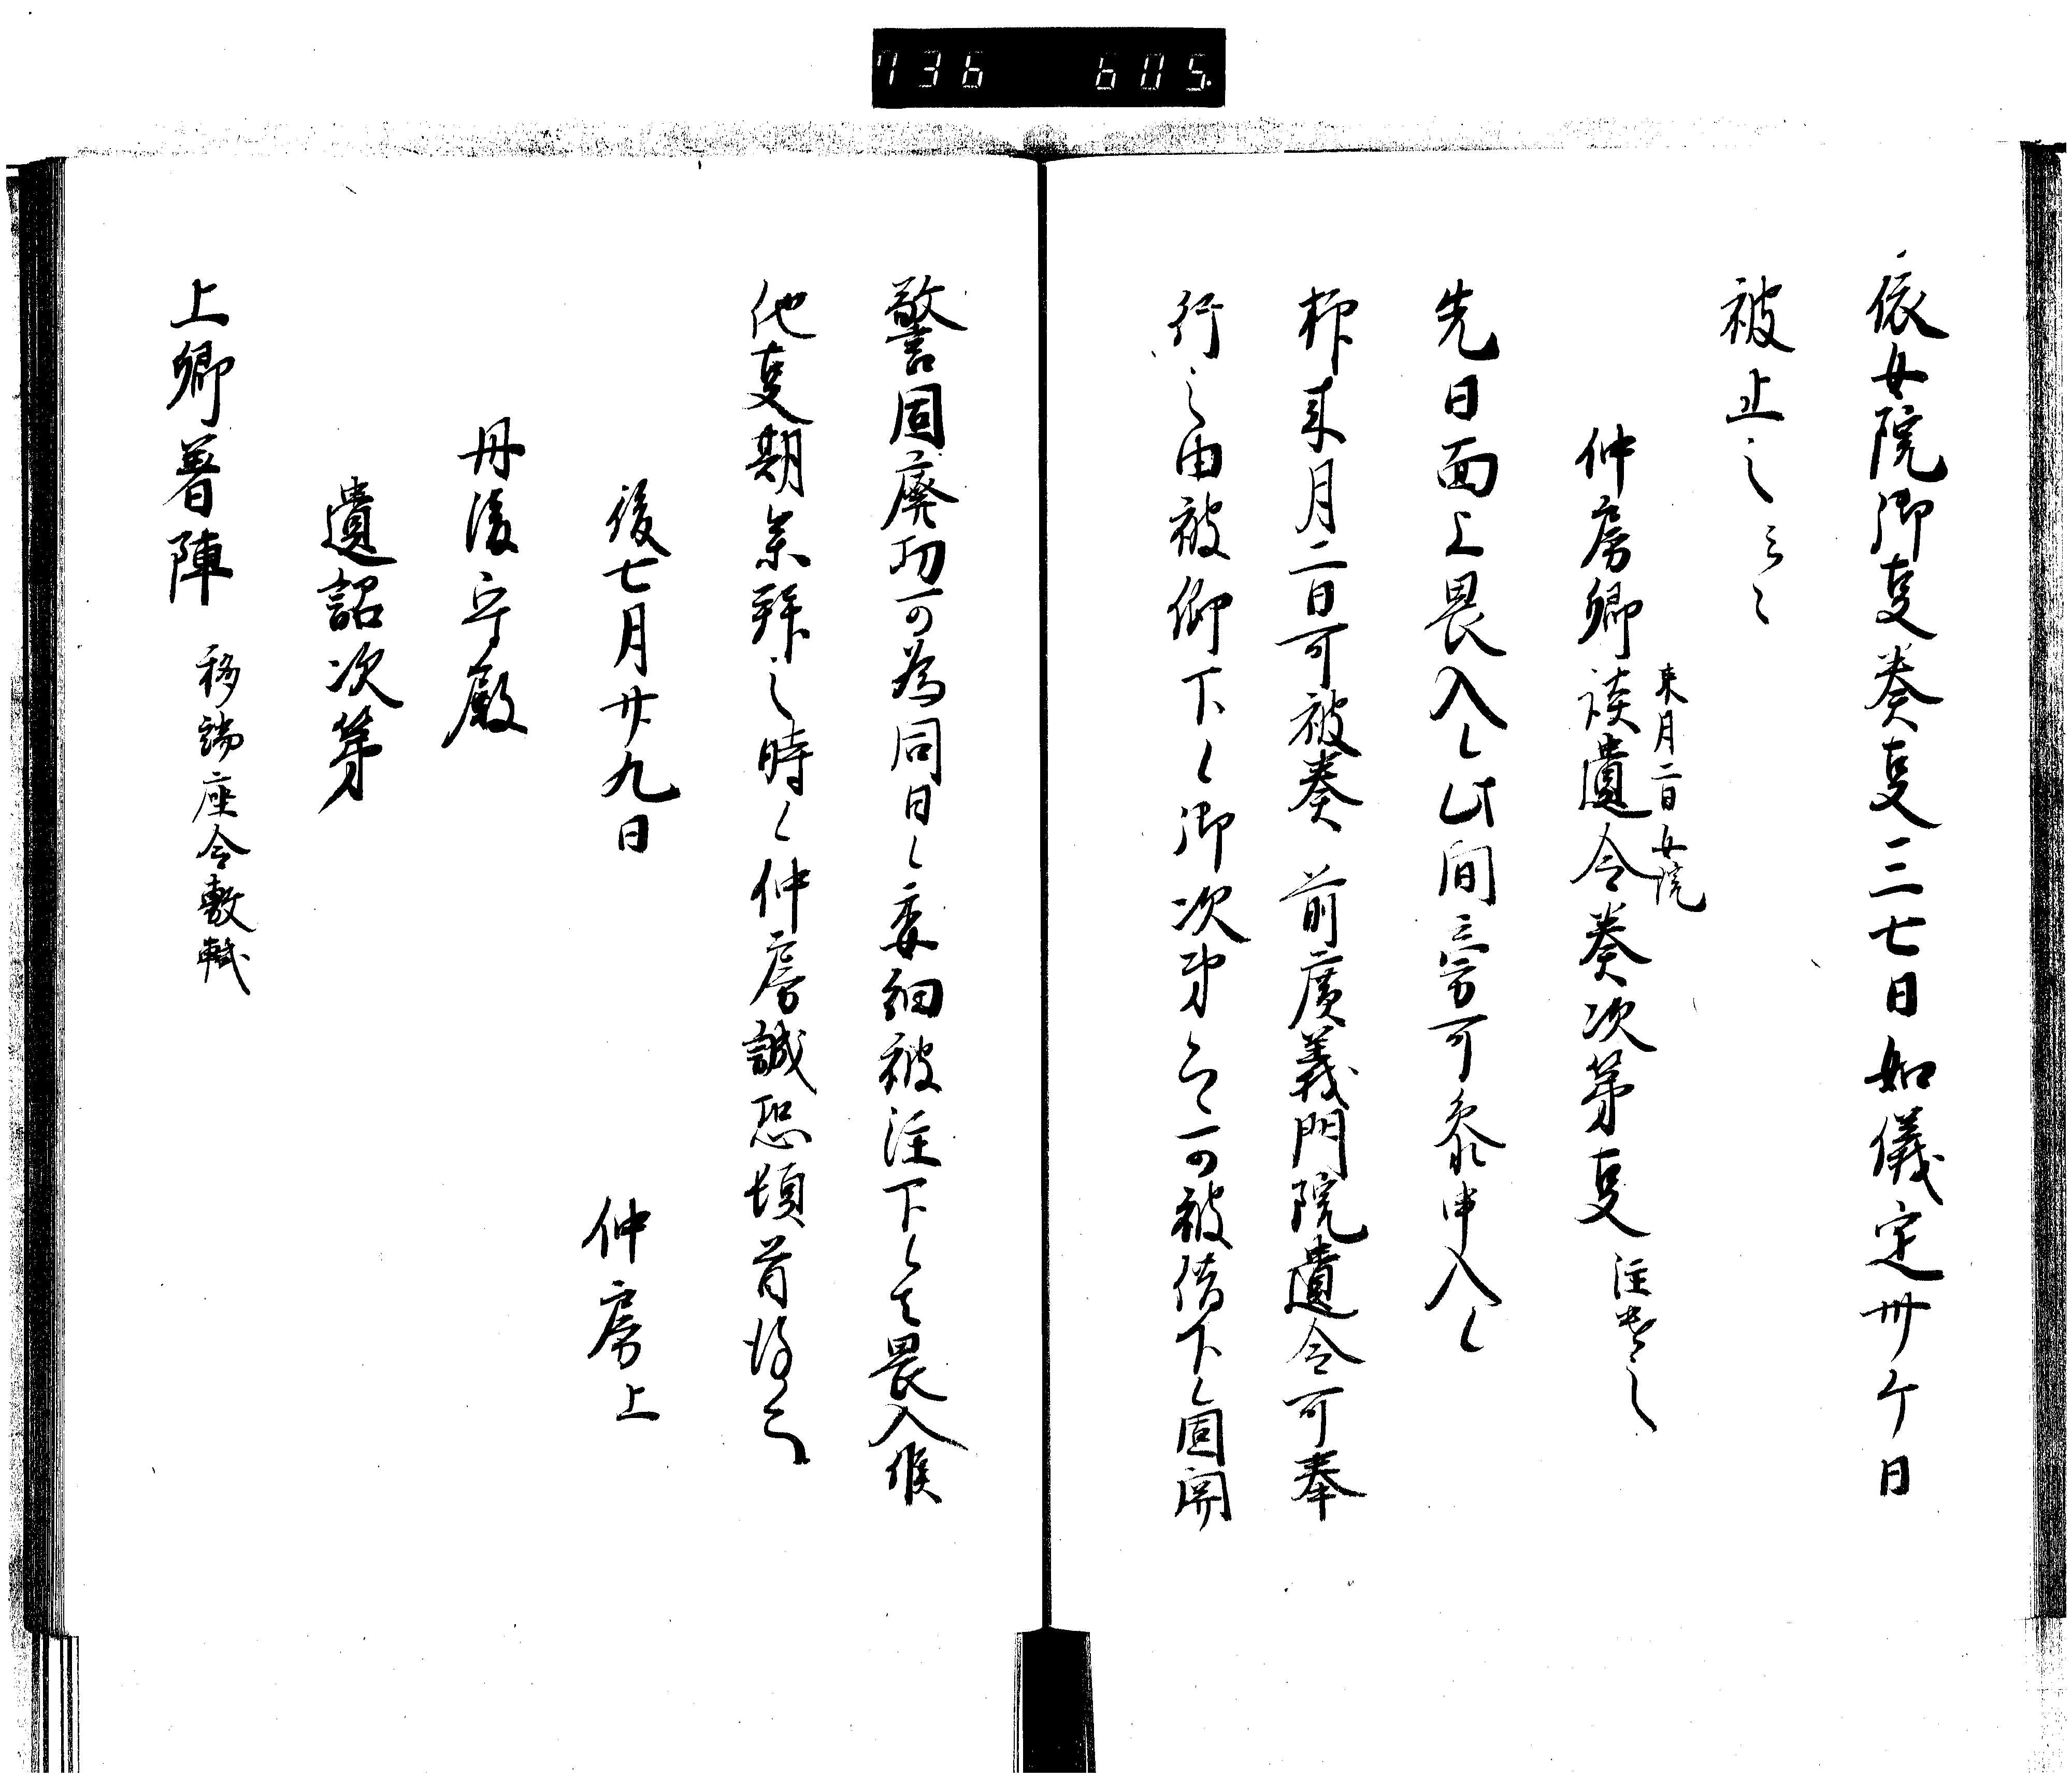 736 605
依女院御事奏事三七日如儀定卅ケ日
被止之云々
来月二日女院
仲房卿談遺令奏次第事 注遣之
先日面上畏入候此間立寄可参申入候
抑来月二日可被奏 前廣義門院遺令可奉
行之由被仰下候御次第々可被借下候固関
警固廃朝可為同日候委細被注下候者畏入候
他事期参拝之時候仲房誠恐頓首謹言
後七月廿九日 仲房上
丹後守殿
遺詔次第
上卿着陣 移端座令敷軾